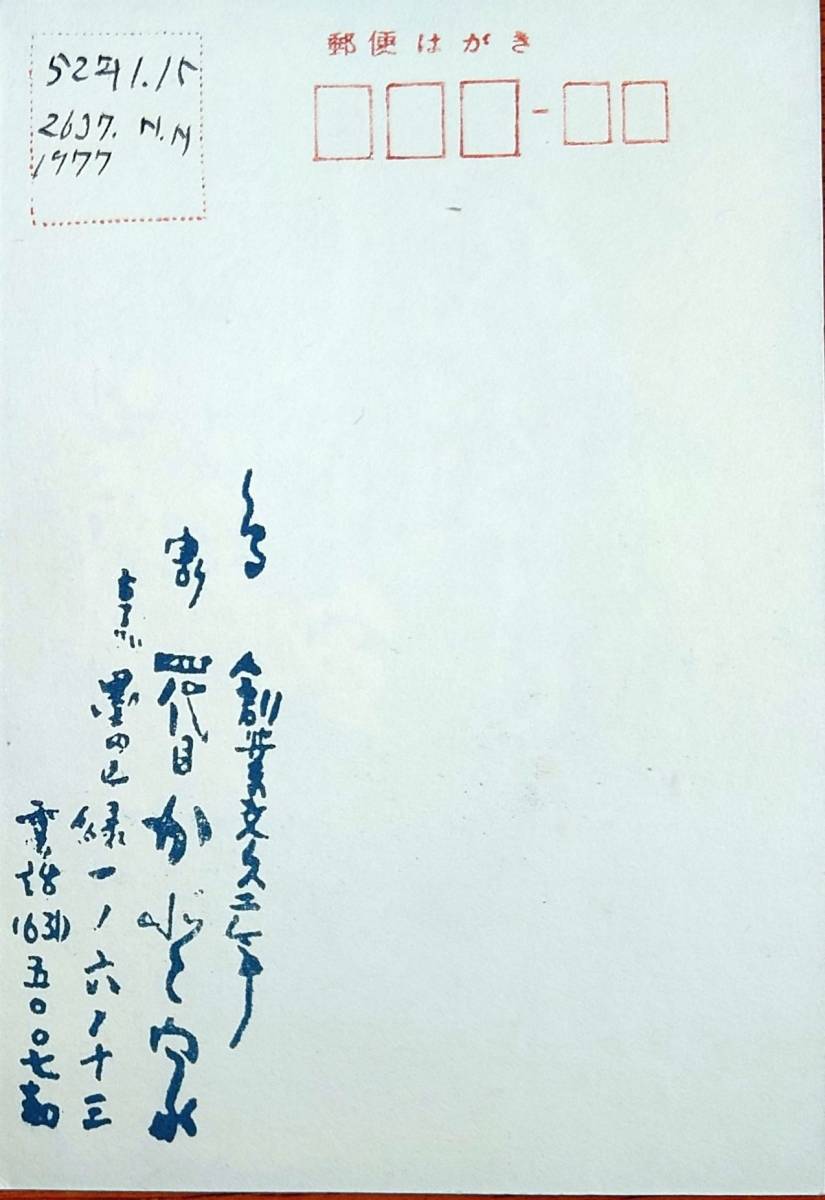 郵便はがき
52年1.15
2637. N.N
1977
鳥 創業文久二年
割 四代目 かど家
墨田区
緑一ノ六ノ十三
電話(631)五〇〇七